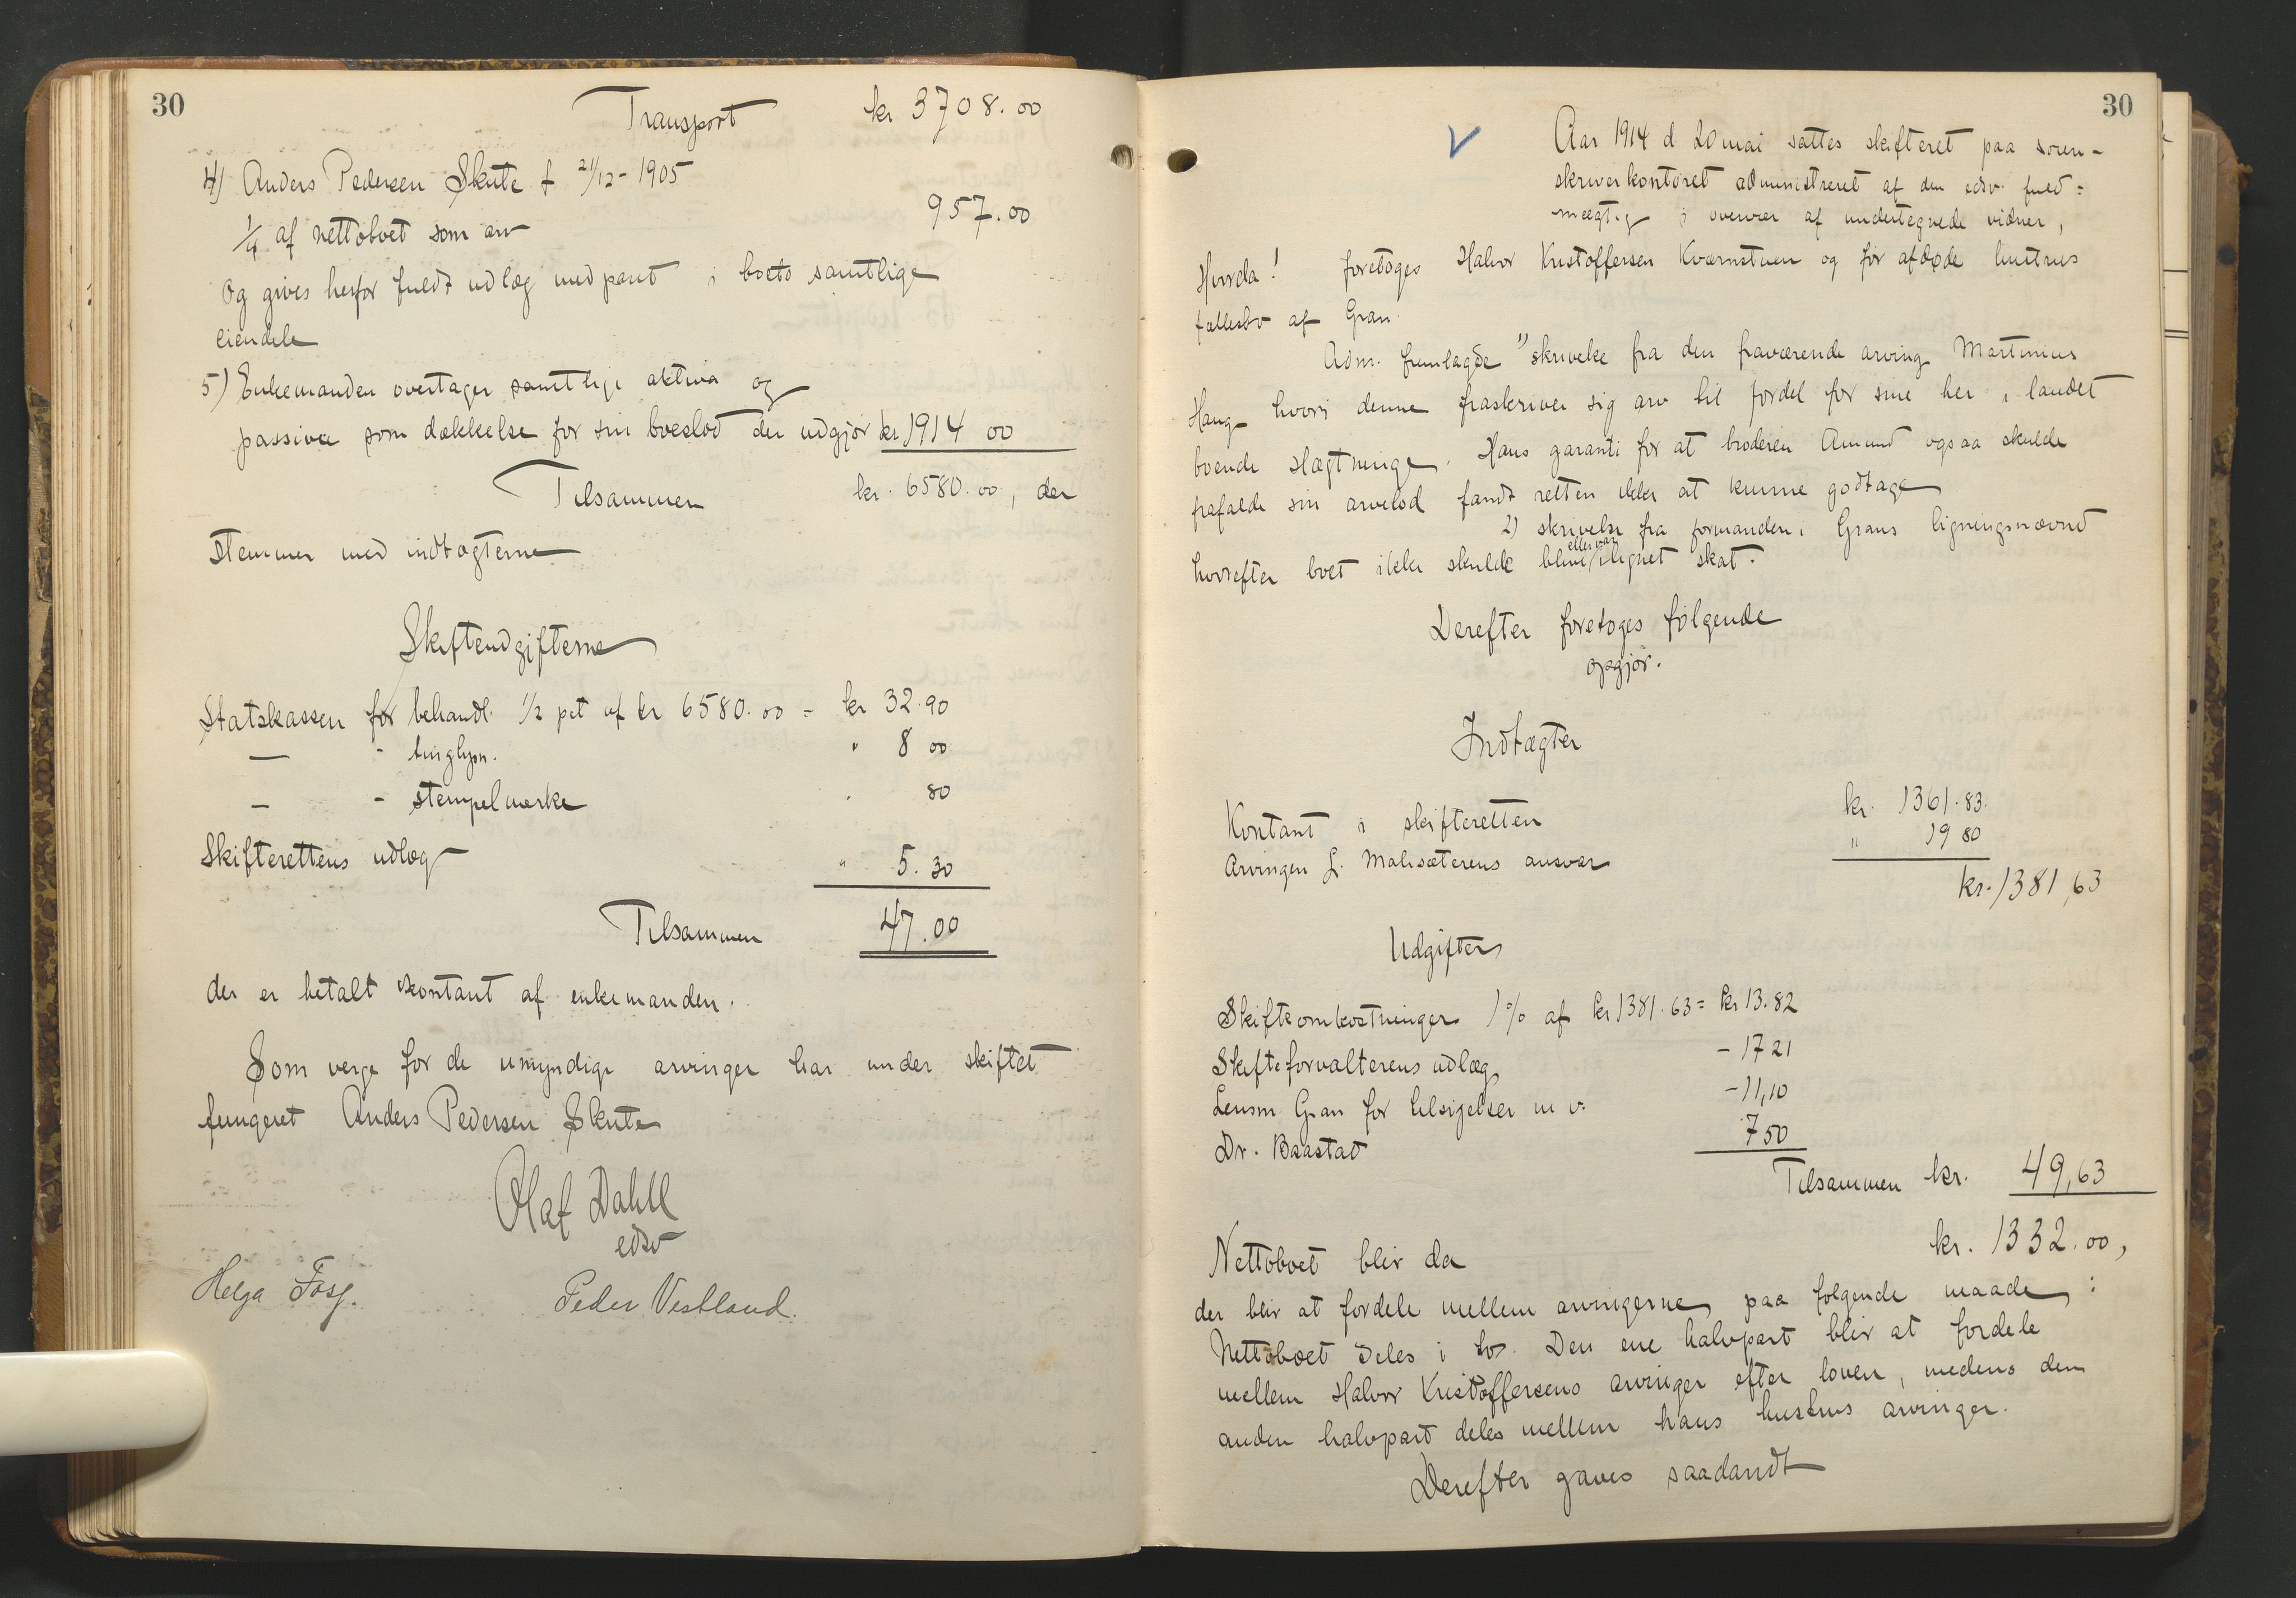 30
Transport kr 3708.00
4) Anders Pedersen Skute f 21/12-1905
1/4 af nettoboet som arv 957.00
og gives herfor fuldt udlæg med pant i boets samtlige
eiendele
5) Enkemanden overtager samtlige aktiva og
passiva som dækkelse for sin boeslod der udgjør kr 1914 00
Tilsammen kr. 6580.00, der
stemmer med indtægterne
Skifteudgifterne
Statskassen for behandl. 1/2 pct af kr 6580.00 = kr 32.90
— - tinglysn. " 8 00
— - stempelmerke . 80
Skifterettens udlæg " 5.30
Tilsammen 47.00
der er betalt kontant af enkemanden.
Som verge for de umyndige arvinger har under skiftet
fungeret Anders Pedersen Skute
Olaf Dahll
edsv
Helga Fosf.
Peder Vestland.
30
Aar 1914 d 20 mai sattes skifteret paa soren-
skriverkontoret administreret af den edsv. fuld=
mægtig i overvær af undertegnede vidner,
Hvorda! foretoges Halvor Kristoffersen Kværnstuen og før afdøde hustrus
fællesbo af Gran.
Adm. fremlagde 1) skrivelse fra den fraværende arving Martinius
Haug hvori denne fraskriver sig arv til fordel for sine her i landet
boende slægtninge. Hans garanti for at broderen Amund ogsaa skulde
frafalde sin arvelod fandt retten ikke at kunne godtage
2) skrivelse fra formanden i Grans ligningsnævnd
hvorefter boet ikke skulde blive eller var ilignet skat.
Derefter foretoges følgende
opgjør.
Indtægter
Kontant i skifteretten kr. 1361.83.
Arvingen L. Malisæterens ansvar " 19 80
kr. 1381,63
Udgifter
Skifteomkostninger 1% af kr 1381.63 = kr 13.82
Skifteforvalterens udlæg - 17 21
Lensm. Gran for tilsigelser m v. - 11,10
Dr. Baastad 7 50
Tilsammen kr. 49,63
Nettoboet blir da kr. 1332.00,
der blir at fordele mellem arvingerne paa følgende maade:
Nettoboet deles i to. Den ene halvpart blir at fordele
mellem Halvor Kristoffersens arvinger efter loven, medens den
anden halvpart deles mellem hans hustrus arvinger.
Derefter gaves saadandt